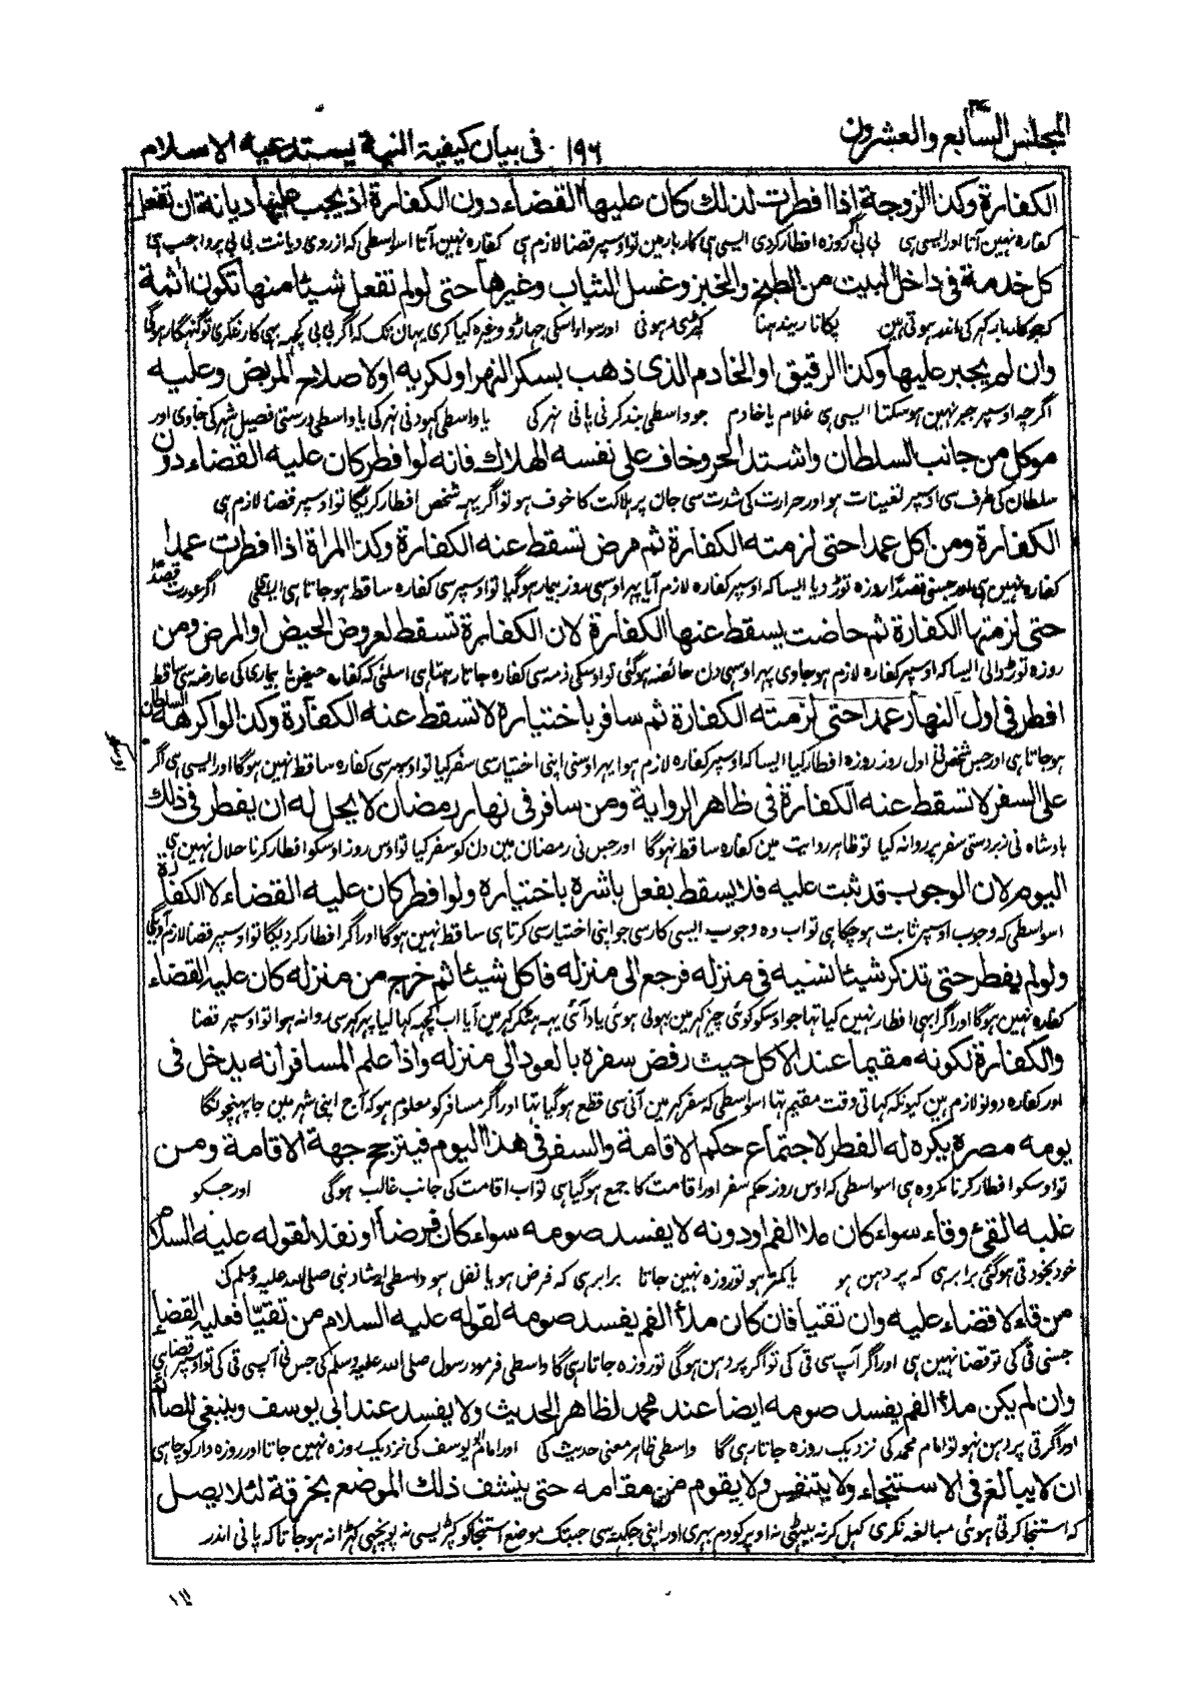 المجلس السابع والعشرون
١٩٦ في بيان كيفية النية يستدعيه الاسلام
الكفارة وكذا الزوجة اذا افطرت لذلك كان عليها القضاء دون الكفارة اذ يجب عليها ديانة ان تفعل
کفارہ نہین آتا اور ایسی ہی بی بی گر روزہ افطار کردی ایسی ہی کاربار مین تو اوسپر قضا لازم ہی کفارہ نہین آتا اسواسطی کہ از روی دیانت بی بی پر واجب ہی
كل خدمة فى داخل البيت من الطبخ والخبز وغسل الثياب وغيرها حتى لو لم تفعل شيئا منها تكون اثمة
کہ جو کاربار گہر کی اندر ہوتی ہین پکانا ریندہنا کپڑی دہونی اور سوا اسکی جہاڑو وغیرہ کیا کری یہان تک کہ اگر بی بی کچہہ بہی کار نکری تو گنہگار ہوگی
وان لم يجبر عليها وكذا الرقيق او الخادم الذى ذهب بسكر النهر او لكريه او لاصلاح المربض وعليه
اگرچہ اوسپر جبر نہین ہوسکتا ایسی ہی غلام یا خادم جو واسطی بند کرنی پانی نہر کی یا واسطی کہودنی نہر کی یا واسطی درستی فصیل شہر کی جاوی اور
موكل من جانب السلطان واشتد الحر وخاف على نفسه الهلاك فانه لو افطر كان عليه القضاء دون
سلطان کی طرف سی اوسپر تعینات ہو اور حرارت کی شدت سی جان پر ہلاکت کا خوف ہو تو اگر یہہ شخص افطار کریگا تو اوسپر قضا لازم ہی
الكفارة ومن اكل عمدا حتى لزمته الكفارة ثم مرض تسقط عنه الكفارة وكذا المراة اذا افطرت عمدا
کفارہ نہین ہی اور جسنی قصدًا روزہ توڑ دیا ایسا کہ اوسپر کفارہ لازم آیا پہر اوسی روز بیمار ہوگیا تو اوسپر سی کفارہ ساقط ہوجاتا ہی ایسی ہی اگر عورت قصدًا
حتى لزمتها الكفارة ثم حاضت يسقط عنها الكفارة لان الكفارة تسقط لعروض الحيض او المرض ومن
روزہ توڑ ڈالی ایسا کہ اوسپر کفارہ لازم ہوجاوی پہر اوسی دن حائضہ ہوگئی تو اوسکی ذمہ سی کفارہ جاتا رہتا ہی اسلئی کہ کفارہ حیض یا بیماری کی عارضہ سی ساقط
افطر فى اول النهار عمدا حتى لزمته الكفارة ثم سافر باختياره لا تسقط عنه الكفارة وكذا لو اكرهه السلطان
ہوجاتا ہی اور جس شخص نی اول روز روزہ افطار کیا ایسا کہ اوسپر کفارہ لازم ہوا پہر اوسنی اپنی اختیار سی سفر کیا تو اوسپر سی کفارہ ساقط نہین ہوگا اور ایسی ہی اگر
اوسکو
على السفر لا تسقط عنه الكفارة فى ظاهر الرواية ومن سافر فى نهار رمضان لا يحل له ان يفطر فى ذلك
بادشاہ نی زبردستی سفر پر روانہ کیا تو ظاہر روایت مین کفارہ ساقط نہوگا اور جس نی رمضان مین دن کو سفر کیا تو اوس روز اوسکو افطار کرنا حلال نہین ہی
اليوم لان الوجوب قد ثبت عليه فلا يسقط بفعل باشره باختياره ولو افطر كان عليه القضاء لا الكفارة
اسواسطی کہ وجوب اوسپر ثابت ہوچکا ہی تو اب وہ وجوب ایسی کار سی جو اپنی اختیار سی کرتا ہی ساقط نہین ہوگا اور اگر افطار کردیگا تو اوسپر قضا لازم آویگی
ولو لم يفطر حتى تذكر شيئا نسيه فى منزله فرجع الى منزله فاكل شيئا ثم خرج من منزله كان عليه القضاء
کفارہ نہین ہوگا اور اگر ابہی افطار نہین کیا تہا جو اوسکو کوئی چیز گہر مین بہولی ہوئی یاد آئی یہہ ہٹکر گہر مین آیا اب کچہہ کہا لیا پہر گہر سی روانہ ہوا تو اوسپر قضا
والكفارة لكونه مقيما عند الاكل حيث رفض سفره بالعود الى منزله واذا علم المسافر انه يدخل فى
اور کفارہ دونو لازم ہین کیونکہ کہاتی وقت مقیم تہا اسواسطی کہ سفر گہر مین آنی سی قطع ہوگیا تہا اور اگر مسافر کو معلوم ہو کہ آج اپنی شہر مین جا پہنچونگا
يومه مصره يكره له الفطر لاجتماع حكم الاقامة والسفر فى هذا اليوم فيترجح جهة الاقامة ومن
تو اوسکو افطار کرنا مکروہ ہی اسواسطی کہ اوس روز حکم سفر اور اقامت کا جمع ہوگیا ہی تو اب اقامت کی جانب غالب ہوگی اور جسکو
غلبه القئ وقاء سواء كان ملا الفم او دونه لا يفسد صومه سواء كان فرضا او نفلا لقوله عليه السلام
خود بخود قی ہوگئی برابر ہی کہ پر دہن ہو یا کمتر ہو تو روزہ نہین جاتا برابر ہی کہ فرض ہو یا نفل ہو واسطی ارشاد نبی صلی اللہ علیہ وسلم کی
من قاء لا قضاء عليه وان تقيا فان كان ملأ الفم يفسد صومه لقوله عليه السلام من تقيّأ فعليه القضاء
جسنی قی کی تو قضا نہین ہی اور اگر آپ سی قی کی تو اگر پر دہن ہوگی تو روزہ جاتا رہیگا واسطی فرمودہ رسول صلی اللہ علیہ وسلم کی جس نی آپسی قی کی تو اوسپر قضا ہی
وان لم يكن ملأ الفم يفسد صومه ايضا عند محمد لظاهر الحديث ولا يفسد عند ابى يوسف وينبغى للصائم
اور اگر قی پر دہن نہو تو امام محمد کی نزدیک روزہ جاتا رہیگا واسطی ظاہر معنی حدیث کی اور امام ابو یوسف کی نزدیک روزہ نہین جاتا اور روزہ دار کو چاہی
ان لا يبالغ فى الاستنجاء ولا يتنفس ولا يقوم من مقامه حتى ينشف ذلك الموضع بخرقة لئلا يصل
کہ استنجا کرتی ہوئی مبالغہ نکری کہل کر نہ بیٹہی نہ اوپر کو دم بہری اور اپنی جگہہ سی جبتک موضع استنجا کو کپڑی سی نہ پونچہی کہڑا نہ ہو جا تا کہ پانی اندر